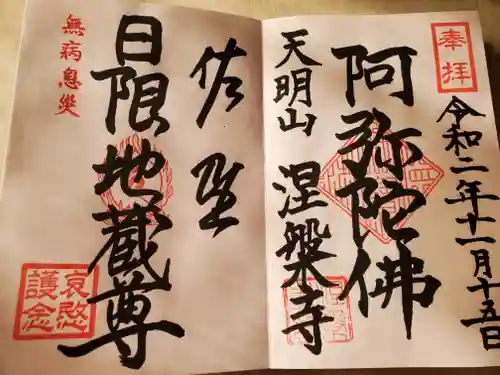 奉拝
令和二年十一月十五日
阿弥陀佛
天明山
涅槃寺
佐野
日限地蔵尊
無病息災
哀愍
護念